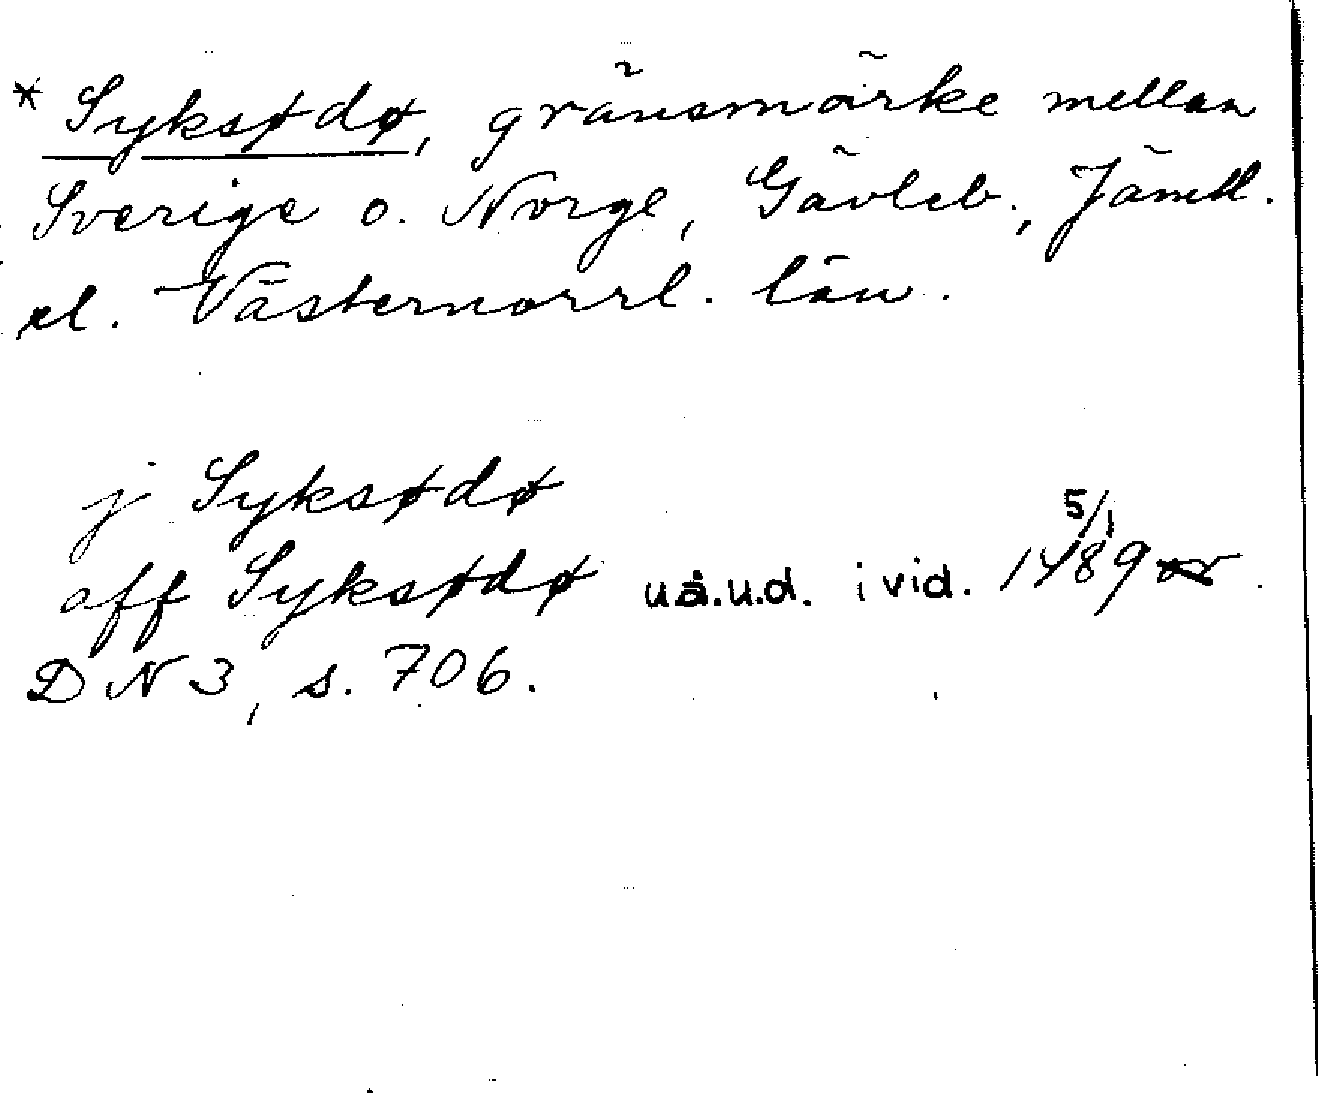 * Syksødø, gränsmärke mellan
Sverige o. Norge, Gävleb., Jämtl.
el. Västernorrl. län.
j Syksødø
5/1
aff Syksødø u.å.u.d. i vid. 1489
DN 3, s. 706.